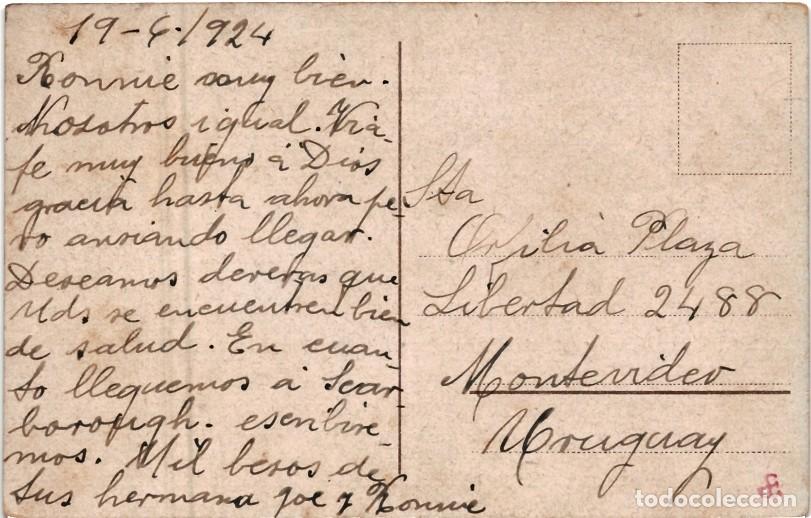 19-6-1924
Ronnie muy bien.
Nosotros igual. Via-
je muy bueno á Dios
gracia hasta ahora pe-
ro ansiando llegar.
Deseamos deveras que
Uds. se encuentren bien
de salud. En cuan-
to lleguemos á Scar-
borough. escribire-
mos. Mil besos de
tus hermana Joe y Ronnie
Sta
Orfilia Plaza
Libertad 2488
Montevideo
Uruguay
todocoleccion